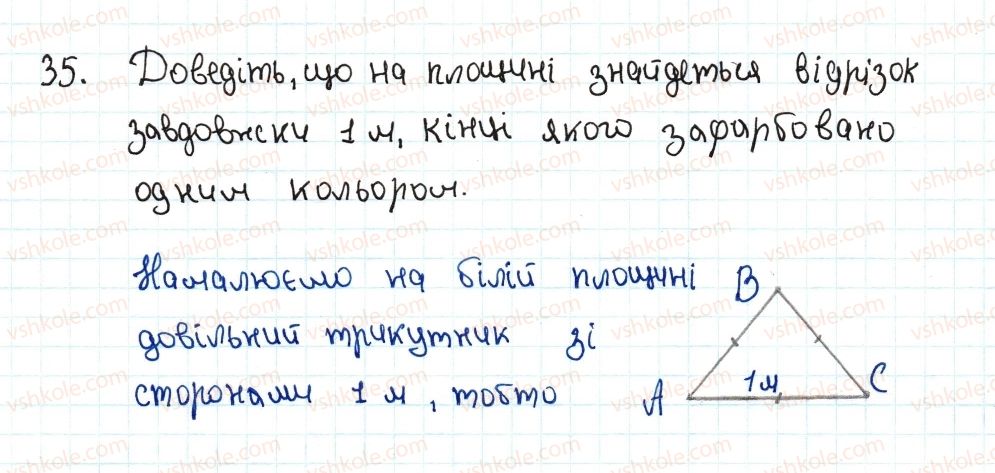 35. Доведіть, що на площині знайдеться відрізок
завдовжки 1 м, кінці якого зафарбовано
одним кольором.
Намалюємо на білій площині
довільний трикутник зі
сторонами 1 м, тобто
B
A
1 м
C
vshkole.com